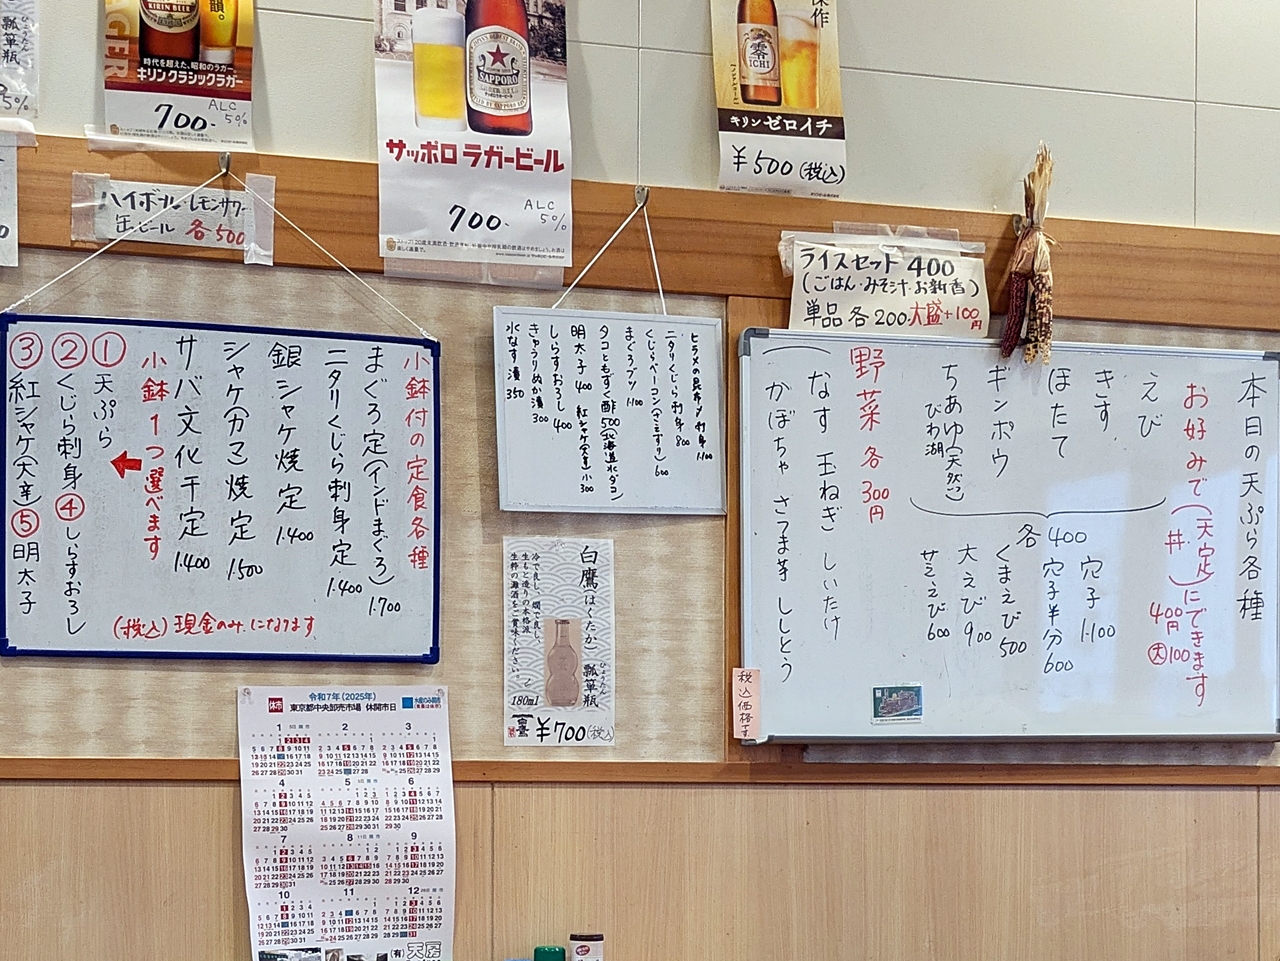 瓢箪瓶
5%
KIRIN BEER
時代を超えた、昭和のラガー。
キリンクラシックラガー
700-
ALC
5%
SAPPORO
LAGER BEER
サッポロ ラガービール
700-
ALC
5%
零
ICHI
キリン ゼロイチ
¥500(税込)
ハイボール・レモンサワー
缶ビール 各500
ライスセット 400
(ごはん・みそ汁・お新香)
単品 各200.大盛+100円
小鉢付の定食各種
まぐろ定(インドまぐろ) 1.700
ニタリくじら刺身定 1.400
銀シャケ焼定 1.400
シャケ(カマ)焼定 1.500
サバ文化干定 1.400
小鉢1つ選べます
①天ぷら
②くじら刺身 ④しらすおろし
③紅シャケ(大辛)⑤明太子
(税込)現金のみになります
ヒラメの昆布〆刺身 1.100
ニタリくじら刺身 800
くじらベーコン 600
まぐろブツ 1.100
タコともずく酢 500(北海道水ダコ)
明太子 400 紅シャケ(大辛)小 300
しらすおろし 400
きゅうりぬか漬 300
水なす漬 350
白鷹(はくたか) 瓢箪瓶
ひょうたん
冷で良し、燗で良し、
生もと造りの本格派
生粋の灘酒をご賞味ください。
180ml
¥700(税込)
本日の天ぷら各種
お好みで(天定)(丼)にできます
400円 大100
えび
きす
ほたて
ギンポウ
ちあゆ(天然)
びわ湖
各400
穴子 1.100
穴子半分 600
くまえび 500
大えび 900
芝えび 600
野菜 各300円
なす 玉ねぎ しいたけ
かぼちゃ さつま芋 ししとう
税込価格です
休市
令和7年(2025年)
東京都中央卸売市場 休開市日
1
2
3
4
5
6
7
8
9
10
11
12
(有)天房